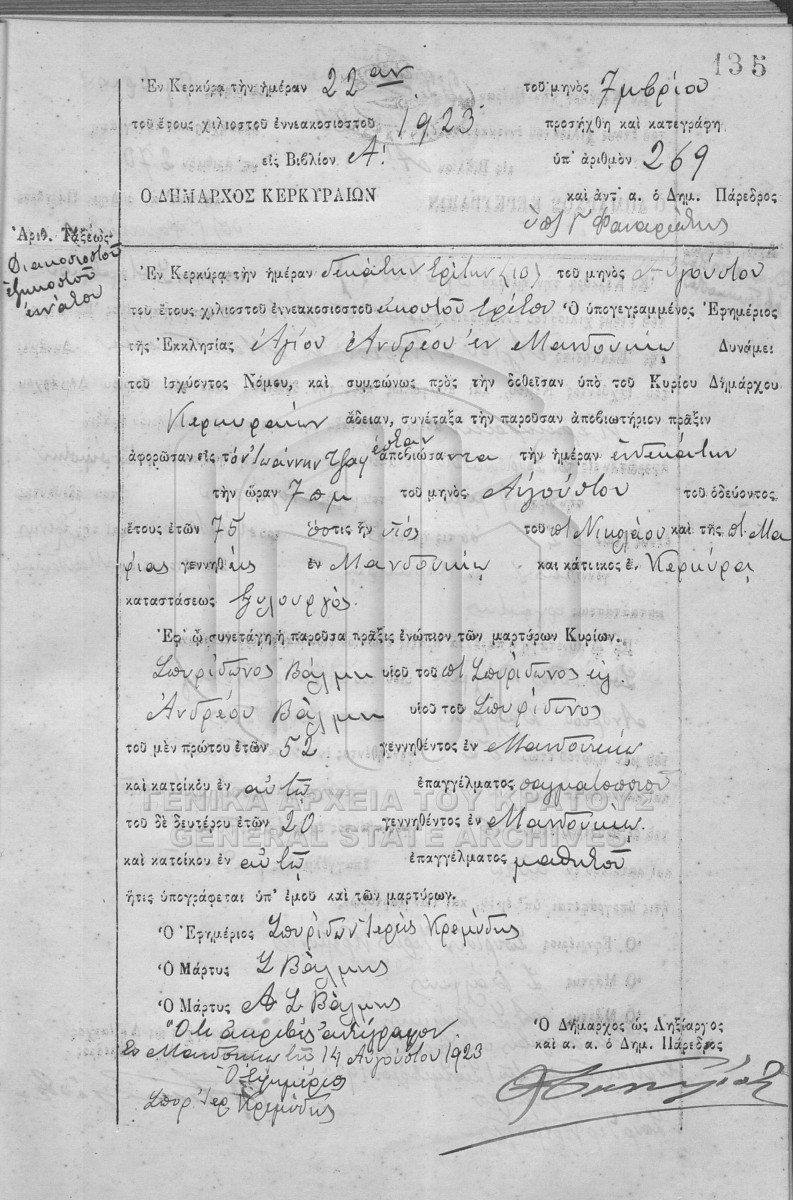 135
Ἐν Κερκύρᾳ τὴν ἡμέραν 22αν τοῦ μηνὸς 7μβρίου
τοῦ ἔτους χιλιοστοῦ ἐννεακοσιοστοῦ 1923 προσήχθη καὶ κατεγράφη
εἰς Βιβλίον Α! ὑπ' ἀριθμὸν 269
Ο ΔΗΜΑΡΧΟΣ ΚΕΡΚΥΡΑΙΩΝ καὶ ἀντ' α. ὁ Δημ. Πάρεδρος
ὑπ Γ Φαναριώτης
Ἀριθ. Τάξεως
Διακοσιοστοῦ
ἑξηκοστοῦ
ἐνάτου
Ἐν Κερκύρᾳ τὴν ἡμέραν δεκάτην τρίτην τοῦ μηνὸς Αὐγούστου
τοῦ ἔτους χιλιοστοῦ ἐννεακοσιοστοῦ εἰκοστοῦ τρίτου Ὁ ὑπογεγραμμένος Ἐφημέριος
τῆς Ἐκκλησίας Ἁγίου Ἀνδρέου ἐν Μανδουκίῳ Δυνάμει
τοῦ ἰσχύοντος Νόμου, καὶ συμφώνως πρὸς τὴν δοθεῖσαν ὑπὸ τοῦ Κυρίου Δημάρχου
Κερκυραίων ἄδειαν, συνέταξα τὴν παροῦσαν ἀποβιωτήριον πρᾶξιν
ἀφορῶσαν εἰς τόν Ἰωάννην ἀποβιώσαντα τὴν ἡμέραν ἑνδεκάτην
τὴν ὥραν 7 πμ τοῦ μηνὸς Αὐγούστου τοῦ ὁδεύοντος
ἔτους ἐτῶν 75 ὅστις ἦν υἱός τοῦ πτ Νικολάου καὶ τῆς πτ Μα
ρίας γεννηθείς ἐν Μανδουκίῳ καὶ κάτοικος ἐν Κερκύρᾳ
καταστάσεως ξυλουργός.
Ἐφ' ᾧ συνετάγη ἡ παροῦσα πρᾶξις ἐνώπιον τῶν μαρτύρων Κυρίων.
Σπυρίδωνος Βάλμη υἱοῦ τοῦ πτ Σπυρίδωνος
Ἀνδρέου Βάλμη υἱοῦ τοῦ Σπυρίδωνος
τοῦ μὲν πρώτου ἐτῶν 52 γεννηθέντος ἐν Μανδουκίῳ
καὶ κατοίκου ἐν αὐτῷ ἐπαγγέλματος παγματοποιοῦ
ΓΕΝΙΚΑ ΑΡΧΕΙΑ ΤΟΥ ΚΡΑΤΟΥΣ
τοῦ δὲ δευτέρου ἐτῶν 20 γεννηθέντος ἐν Μανδουκίῳ.
GENERAL STATE ARCHIVES
καὶ κατοίκου ἐν αὐτῷ ἐπαγγέλματος μαθητοῦ
ἥτις ὑπογράφεται ὑπ' ἐμοῦ καὶ τῶν μαρτύρων.
Ὁ Ἐφημέριος Σπυρίδων Ἱερεὺς Κρεμύδης
Ὁ Μάρτυς Σ Βάλμης
Ὁ Μάρτυς Α Σ Βάλμης
Ὅτι ἀκριβὲς ἀντίγραφον
Ἐν Μανδουκίῳ τῇ 14 Αὐγούστου 1923
Ὁ Ἐφημέριος
Σπυρ Ἱερ Κρεμύδης
Ὁ Δήμαρχος ὡς Ληξίαρχος
καὶ α. α. ὁ Δημ. Πάρεδρος